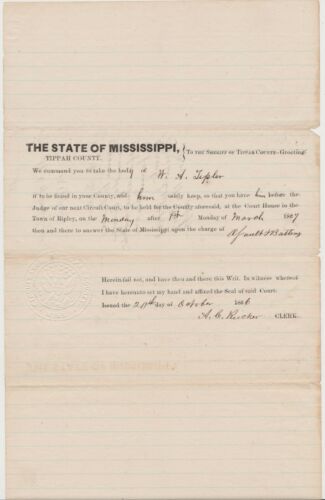 THE STATE OF MISSISSIPPI, } To the Sheriff of Tippah County—Greeting
TIPPAH COUNTY.
We command you to take the body of W. A.
if to be found in your County, and him safely keep, so that you have him before the
Judge of our next Circuit Court, to be held for the County aforesaid, at the Court House in the
Town of Ripley, on the Monday after 1st Monday of March 1867
then and there to answer the State of Mississippi upon the charge of
Assault & Battery
Herein fail not, and have then and there this Writ. In witness whereof
I have hereunto set my hand and affixed the Seal of said Court.
Issued the day of October 1866
A. C. Rucker CLERK.